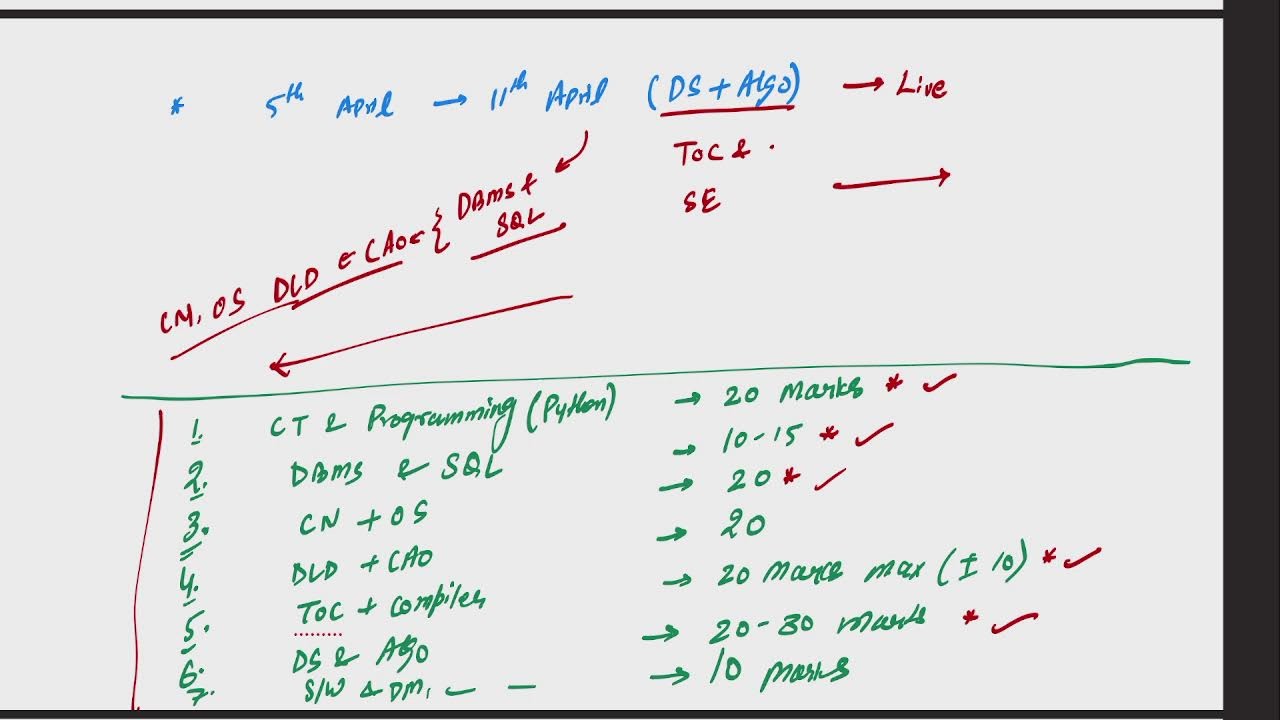 * 5th April → 11th April (DS + Algo) → Live
ToC & .
SE →
DBMS &
SQL
CN, OS DLD & CAO ← {
1. CT & Programming (Python) → 20 Marks * ✓
2. DBMS & SQL → 10-15 * ✓
3. CN + OS → 20 * ✓
4. DLD + CAO → 20
5. TOC + Compiler → 20 Marks max (± 10) * ✓
6. DS & Algo → 20-30 Marks * ✓
7. S/W & DM, ✓ — → 10 Marks